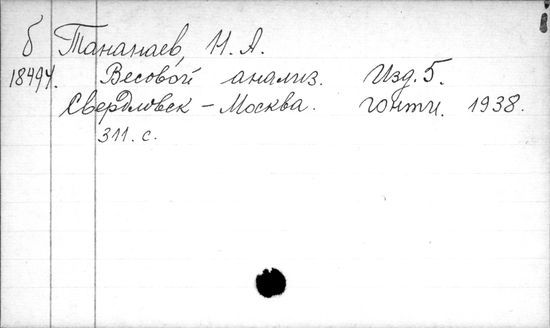 б Тананаев, Н. А.
18494. Весовой анализ. Изд. 5.
Свердловск - Москва. ГОНТИ. 1938.
311. с.